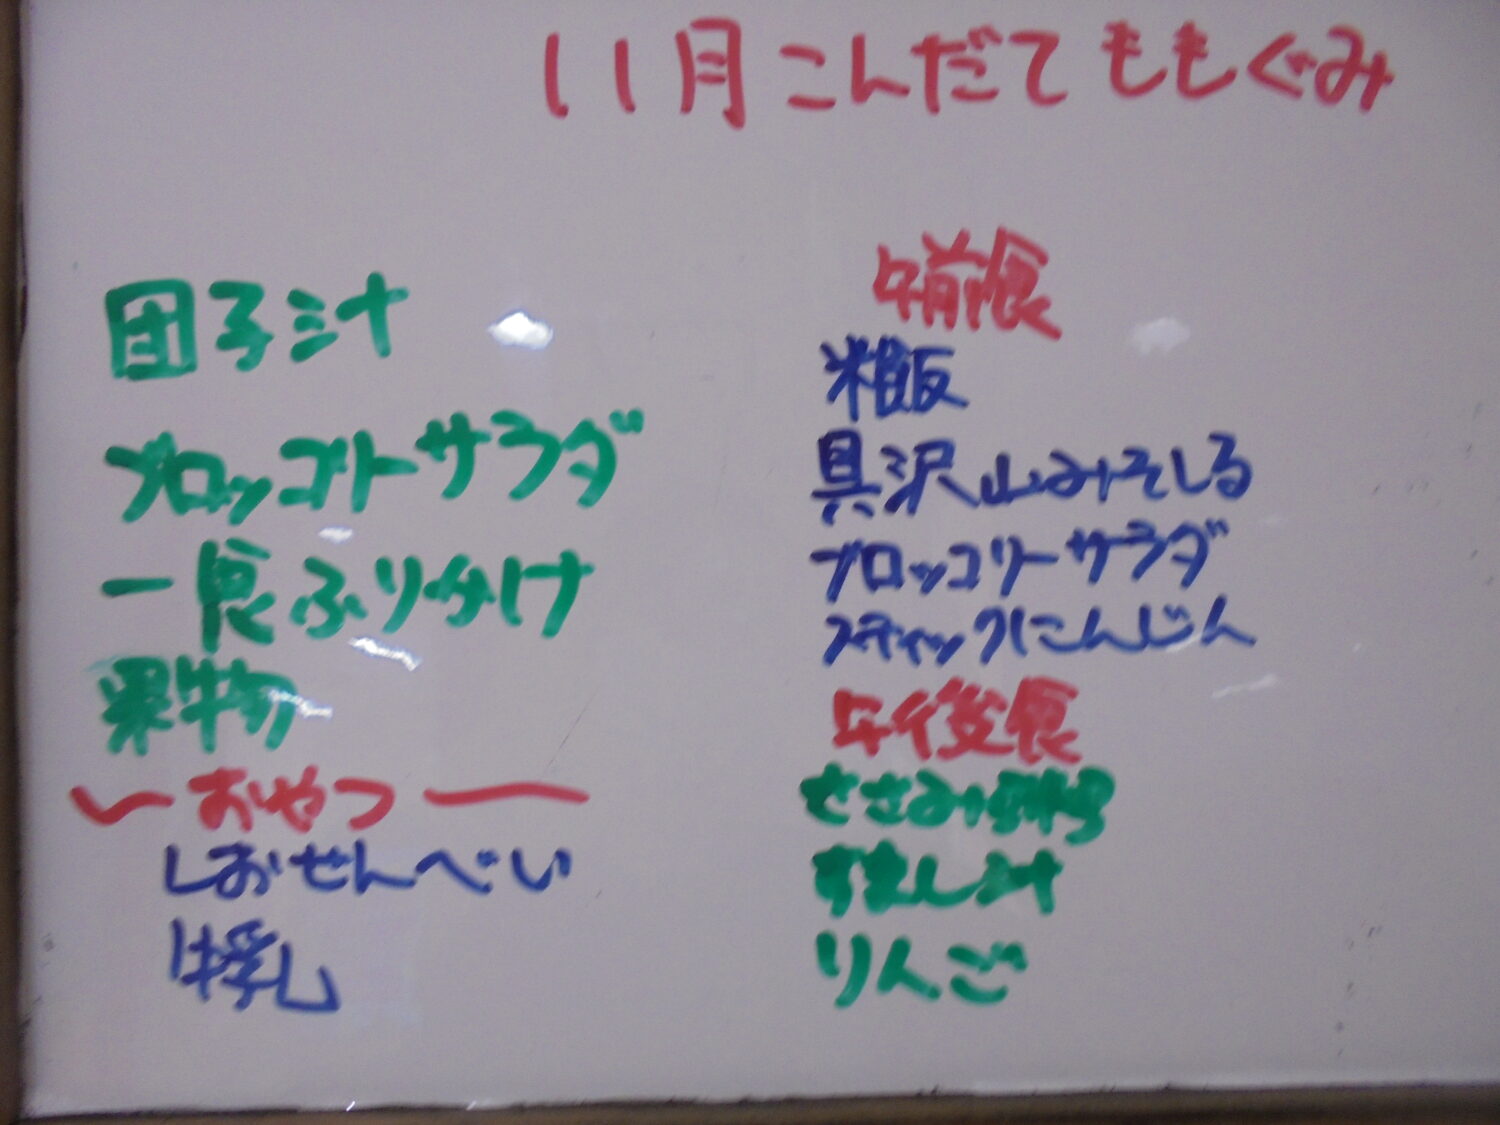 11月こんだてももぐみ
団子汁
ブロッコリーサラダ
一食ふりかけ
果物
おやつ
しおせんべい
牛乳
午前食
軟飯
具沢山みそしる
ブロッコリーサラダ
スティックにんじん
午後食
ささみ
すまし汁
りんご